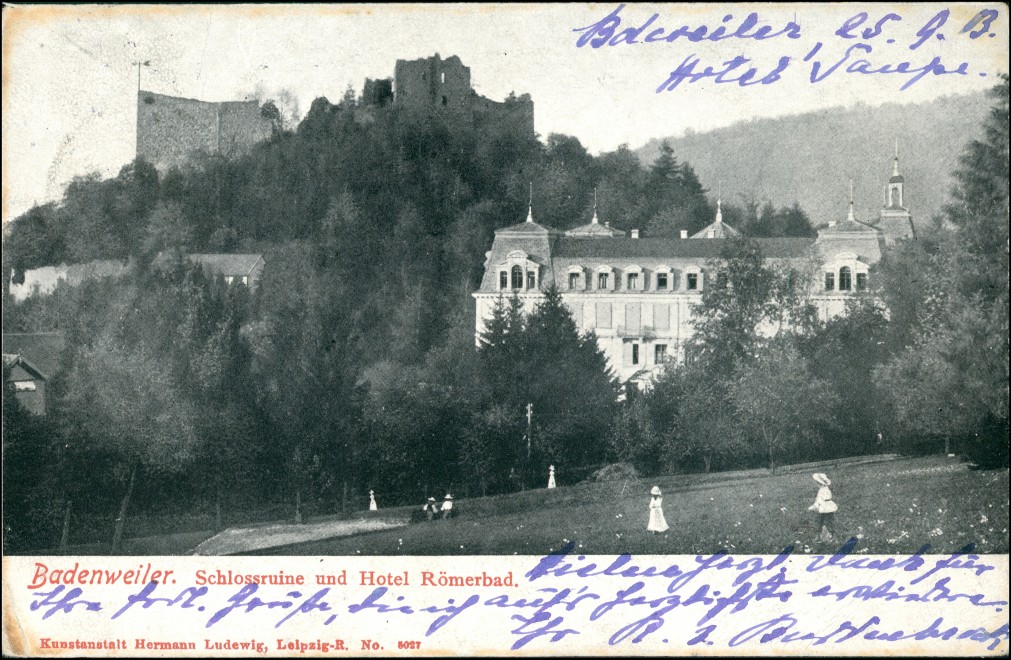 Bdweiler 25. 9. 13.
Hotel Saupe.
Badenweiler. Schlossruine und Hotel Römerbad.
Vielen herzl. Dank für
Ihre frdl. Grüße, die ich auf's herzlichste erwidere.
Ihr R. v.
Kunstanstalt Hermann Ludewig, Leipzig-R. No. 5027